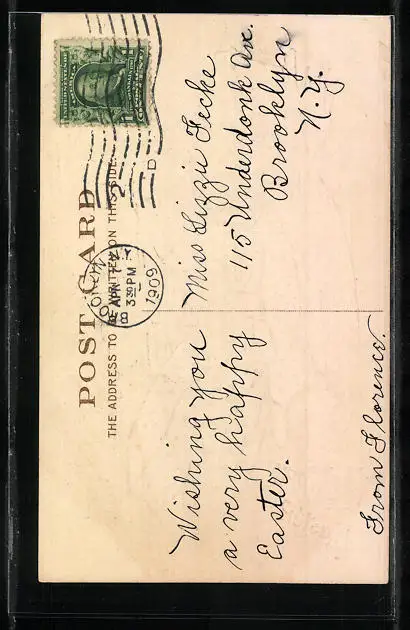 POST CARD
THE ADDRESS TO BE WRITTEN ON THIS SIDE.
APR 7
3 30 PM
1909
D
Wishing you
a very happy
Easter.
From Florence.
Miss Lizzie Fecke
115 Underdonk Ave.
Brooklyn
N. Y.